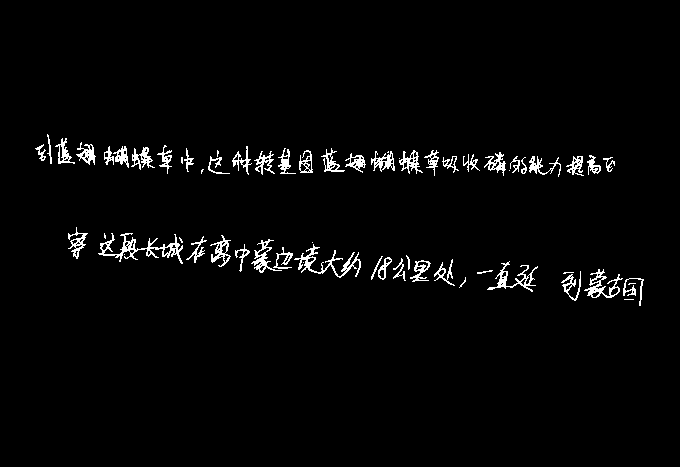 到蓝翅蝴蝶草中,这种转基因蓝翅蝴蝶草吸收磷的能力提高了
穿这段长城在离中蒙边境大约18公里处,一直延到蒙古国